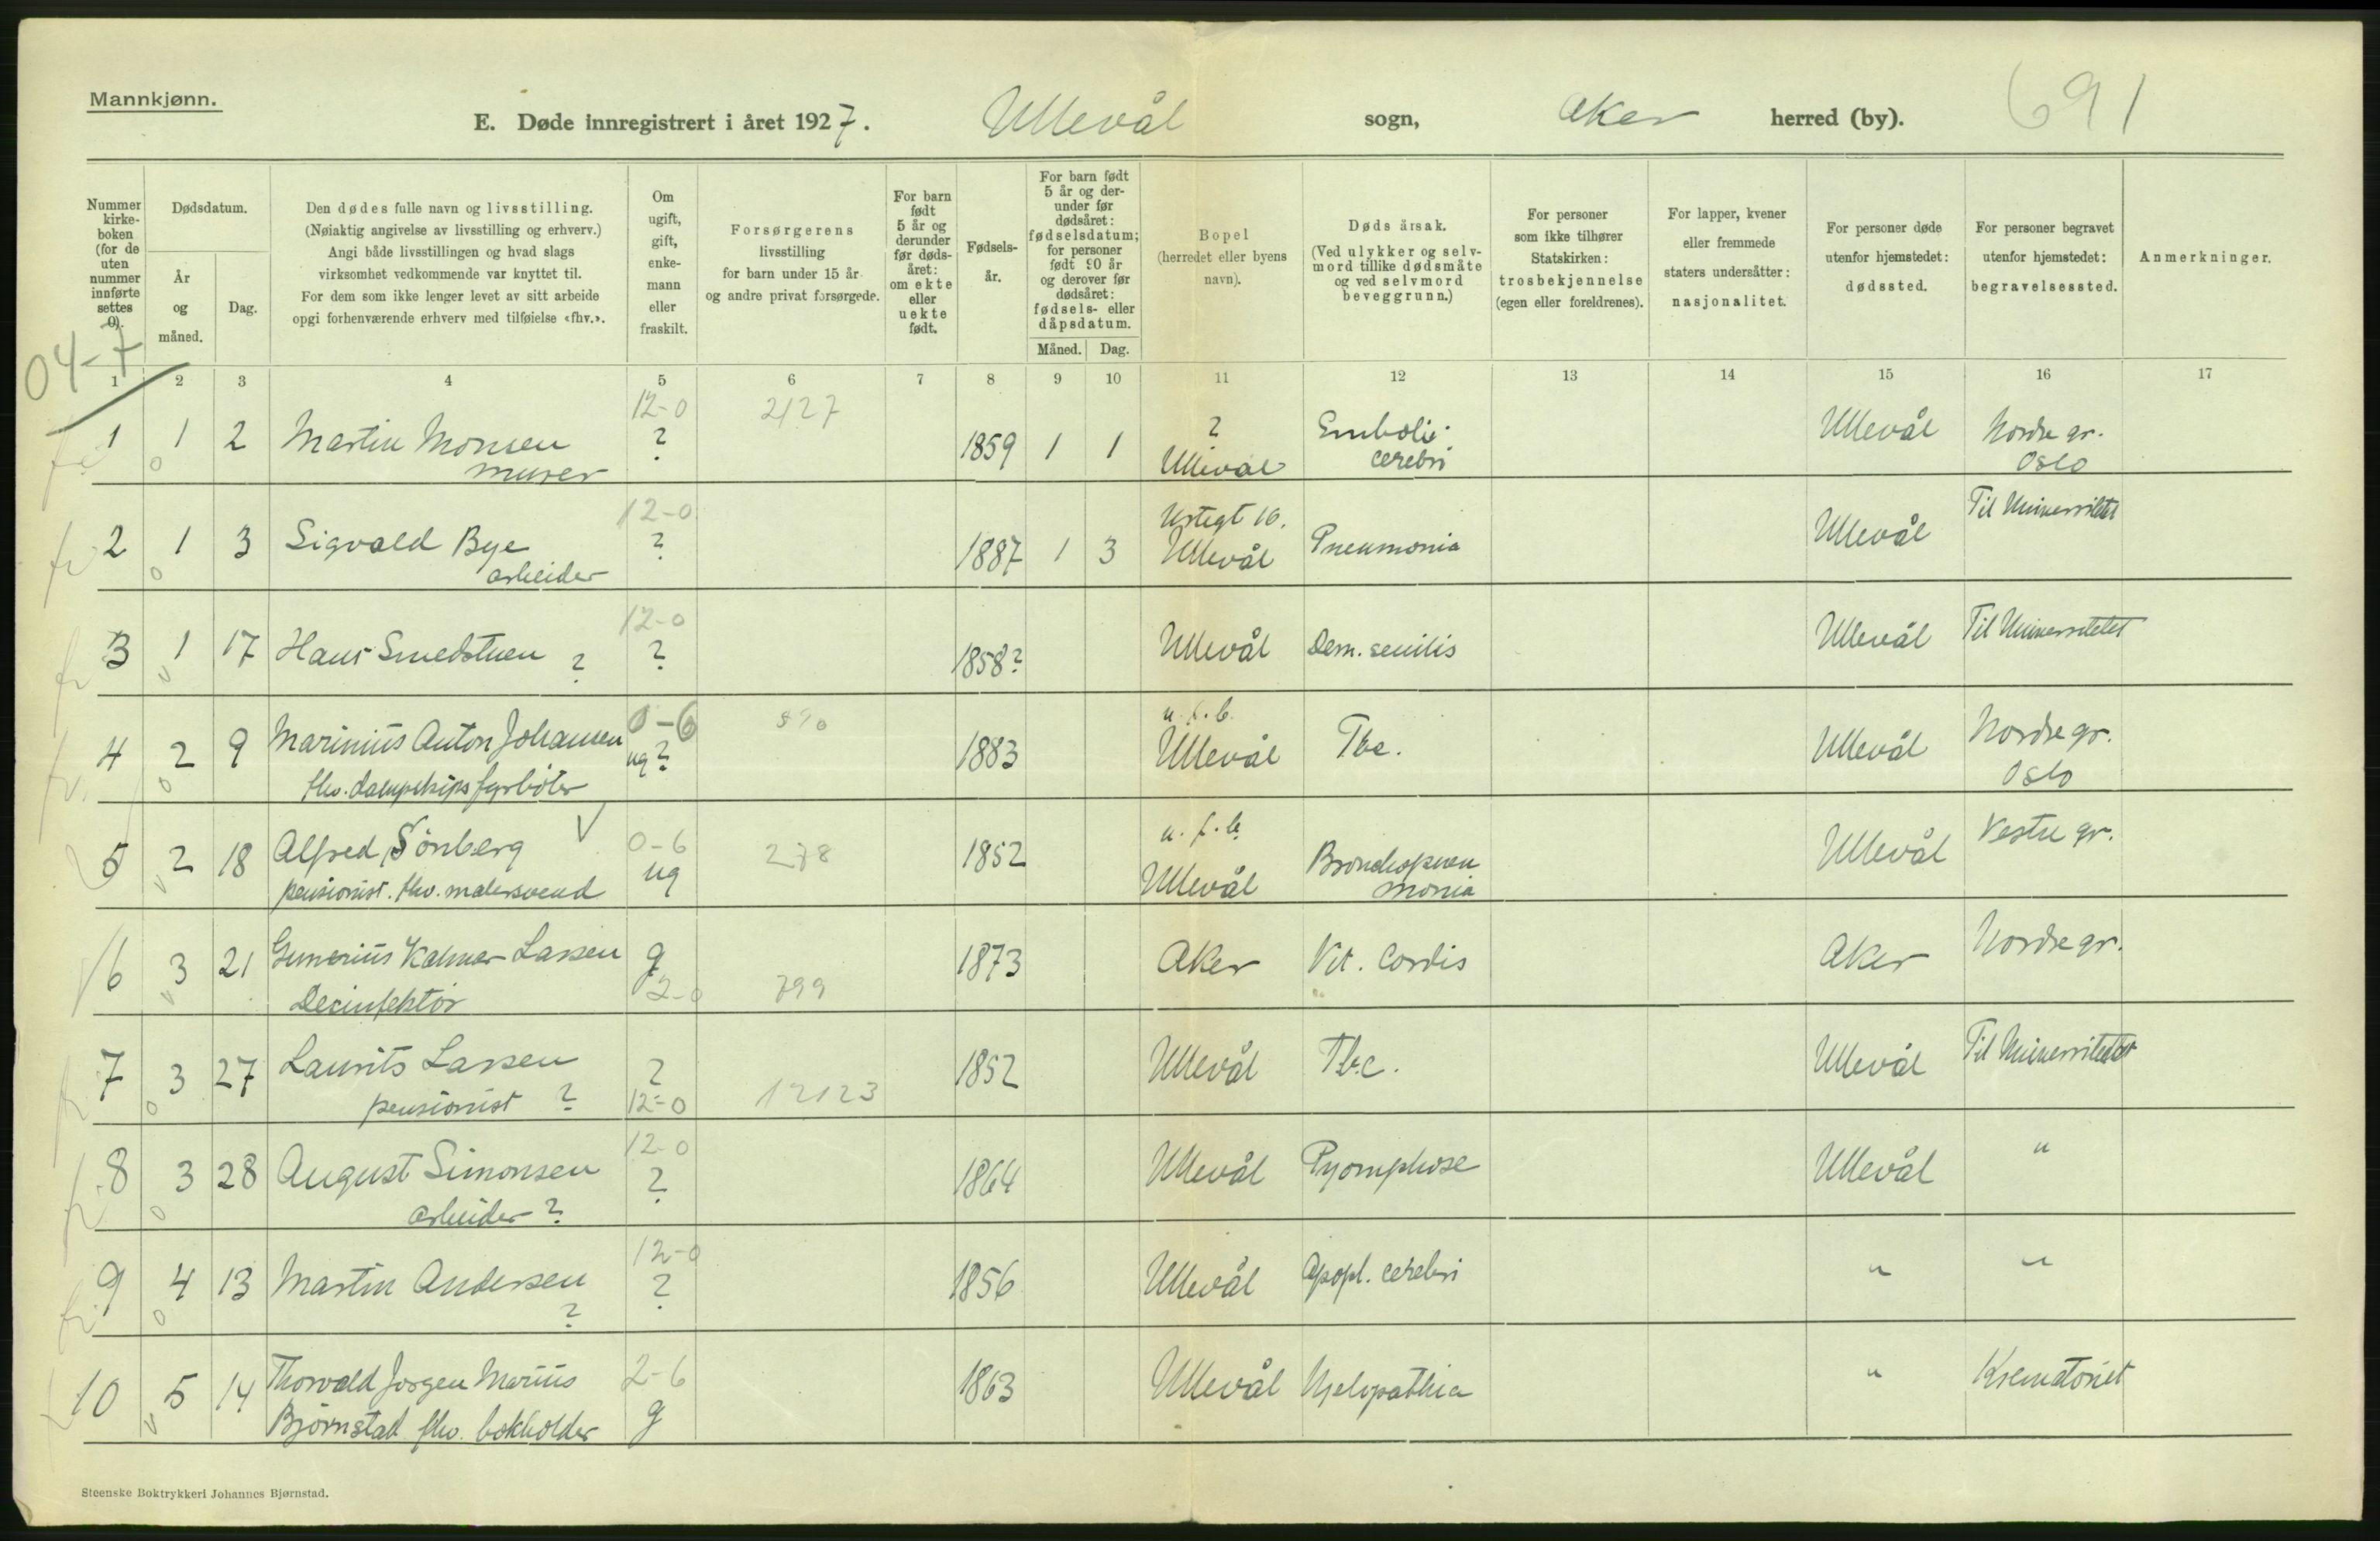 Mannkjønn.
E. Døde innregistrert i året 1927. Ullevål sogn, Aker herred (by). 691
Nummer kirke-boken (for de uten nummer innførte settes 0).
Dødsdatum.
År og måned.
Dag.
Den dødes fulle navn og livsstilling.
(Nøiaktig angivelse av livsstilling og erhverv.)
Angi både livsstillingen og hvad slags
virksomhet vedkommende var knyttet til.
For dem som ikke lenger levet av sitt arbeide
opgi forhenværende erhverv med tilføielse «fhv.».
Om ugift, gift, enke-mann eller fraskilt.
Forsørgerens
livsstilling
for barn under 15 år
og andre privat forsørgede.
For barn født 5 år og derunder før døds-året: om ekte eller uekte født.
Fødsels-år.
For barn født 5 år og der-under før dødsåret: fødselsdatum; for personer født 90 år og derover før dødsåret: fødsels- eller dåpsdatum.
Måned. Dag.
Bopel
(herredet eller byens
navn).
Døds årsak.
(Ved ulykker og selv-
mord tillike dødsmåte
og ved selvmord
beveggrunn.)
For personer
som ikke tilhører
Statskirken:
trosbekjennelse
(egen eller foreldrenes).
For lapper, kvener
eller fremmede
staters undersåtter:
nasjonalitet.
For personer døde
utenfor hjemstedet:
dødssted.
For personer begravet
utenfor hjemstedet:
begravelsessted.
Anmerkninger.
04-7
1 2 3 4 5 6 7 8 9 10 11 12 13 14 15 16 17
12-0 2127
1 1 2 Martin Monsen ? 1859 1 1 ? Emboli Ullevål Nordre gr.
o murer Ullevål cerebri Oslo
12-0 16. Til Universitetet
2 1 3 Sigvald Bye ? 1887 1 3 Ullevål Pneumonia Ullevål
o arbeider
12-0
3 1 17 Hans Smedstuen ? ? 1858? Ullevål Dem. senilis Ullevål Til Universitetet
v
0-6 u. f. b.
4 2 9 Marinius Anton Johansen ug ? 1883 Ullevål Tbc. Ullevål Nordre gr.
o fhv. dampskips fyrbøter Oslo
0-6 278 u. f. b.
5 2 18 Alfred Sönberg ug 1852 Ullevål Bronchopneu Ullevål Vestre gr.
v pensionist. fhv. malersvend monia
6 3 21 Gunerius Kalmar Lassen g 1873 Aker Vit. Cordis Aker Nordre gr.
v Desinfektör 2-0 799
7 3 27 Laurits Lassen ? 1852 Ullevål Tbc. Ullevål Til Universitetet
o pensionist ? 12-0 12123
12-0
8 3 28 August Simonsen ? 1864 Ullevål Ullevål "
o arbeider ?
12-0
9 4 13 Martin Andersen ? 1856 Ullevål Apopl. cerebri " "
o ?
10 5 14 Thorvald Jørgen Marius 2-6 1863 Ullevål " Krematoriet
v Bjørnstad fhv. bokholder g
Steenske Boktrykkeri Johannes Bjørnstad.